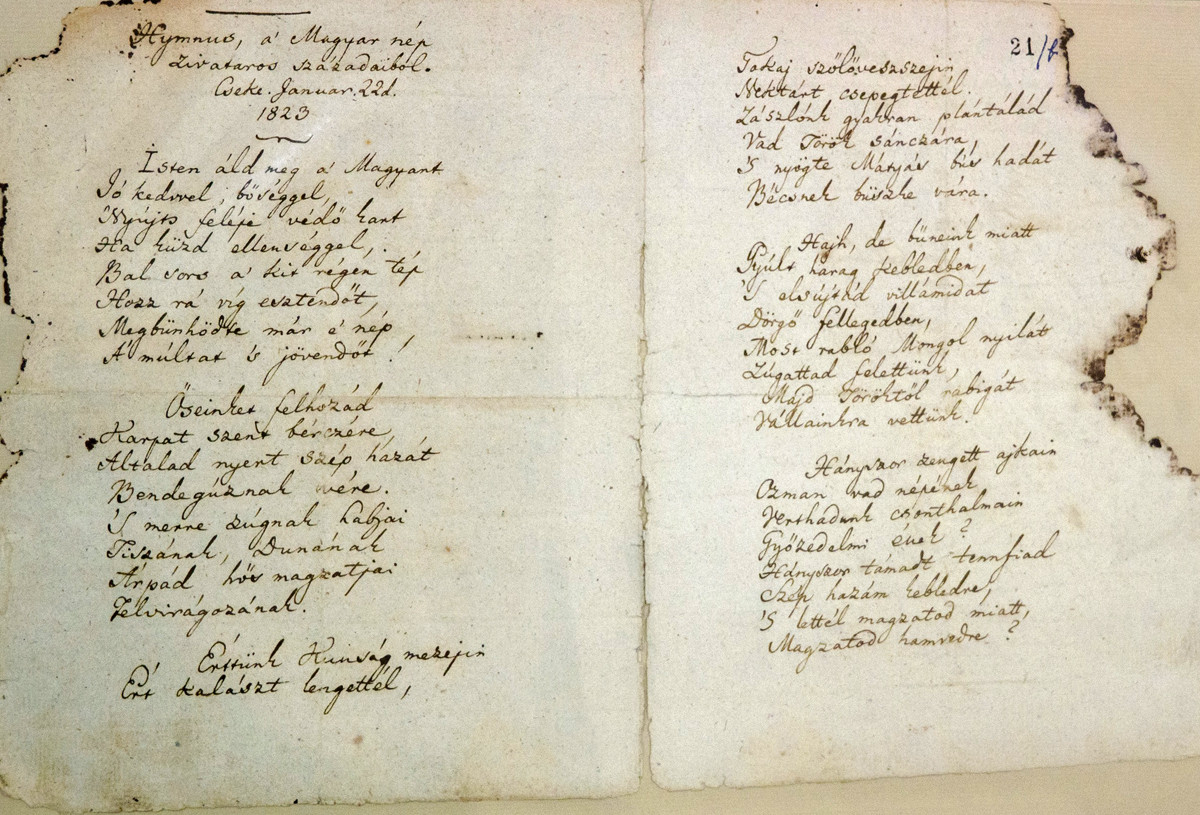 Hymnus, a' Magyar nép
zivataros századaiból.
Cseke. Januar. 22d.
1823
Isten áld meg a' Magyart
Jó kedvvel, bőséggel,
Nyújts feléje védő kart
Ha küzd ellenséggel,
Bal sors a' kit régen tép
Hozz rá víg esztendőt,
Megbünhödte már e' nép
A' múltat 's jövendőt!
Őseinket felhozád
Kárpát szent bérczére,
Általad nyert szép hazát
Bendegúznak vére.
'S merre zúgnak habjai
Tiszának, Dunának
Árpád hős magzatjai
Felvirágozának.
Értünk Kunság mezejin
Ért kalászt lengettél,
21/b
Tokaj szőlővesszejin
Nektárt csepegtettél.
Zászlónk gyakran plántálád
Vad Török sánczára,
'S nyögte Mátyás bús hadát
Bécsnek büszke vára.
Hajh, de bűneink miatt
Gyúlt harag kebledben,
'S elsújtád villámidat
Dörgő fellegedben,
Most rabló Mongol nyilát
Zúgattad felettünk,
Majd Töröktől rabigát
Vállainkra vettünk.
Hányszor zengett ajkain
Ozman vad népének
Vert hadunk csonthalmain
Győzedelmi ének?
Hányszor támadt tennfiad
Szép hazám kebledre,
'S lettél magzatod miatt,
Magzatod hamvedre?